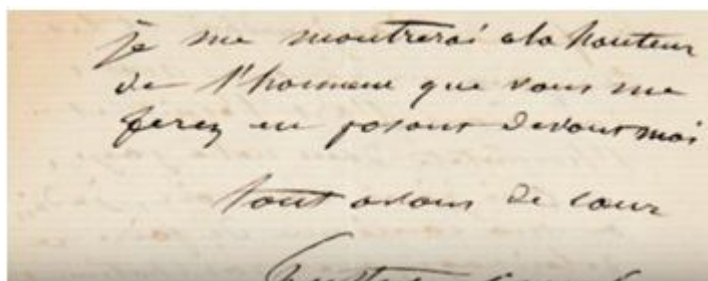 je me montrerai a la hauteur
de l'honneur que vous me
ferez en posant devant moi
tout a vous de cœur